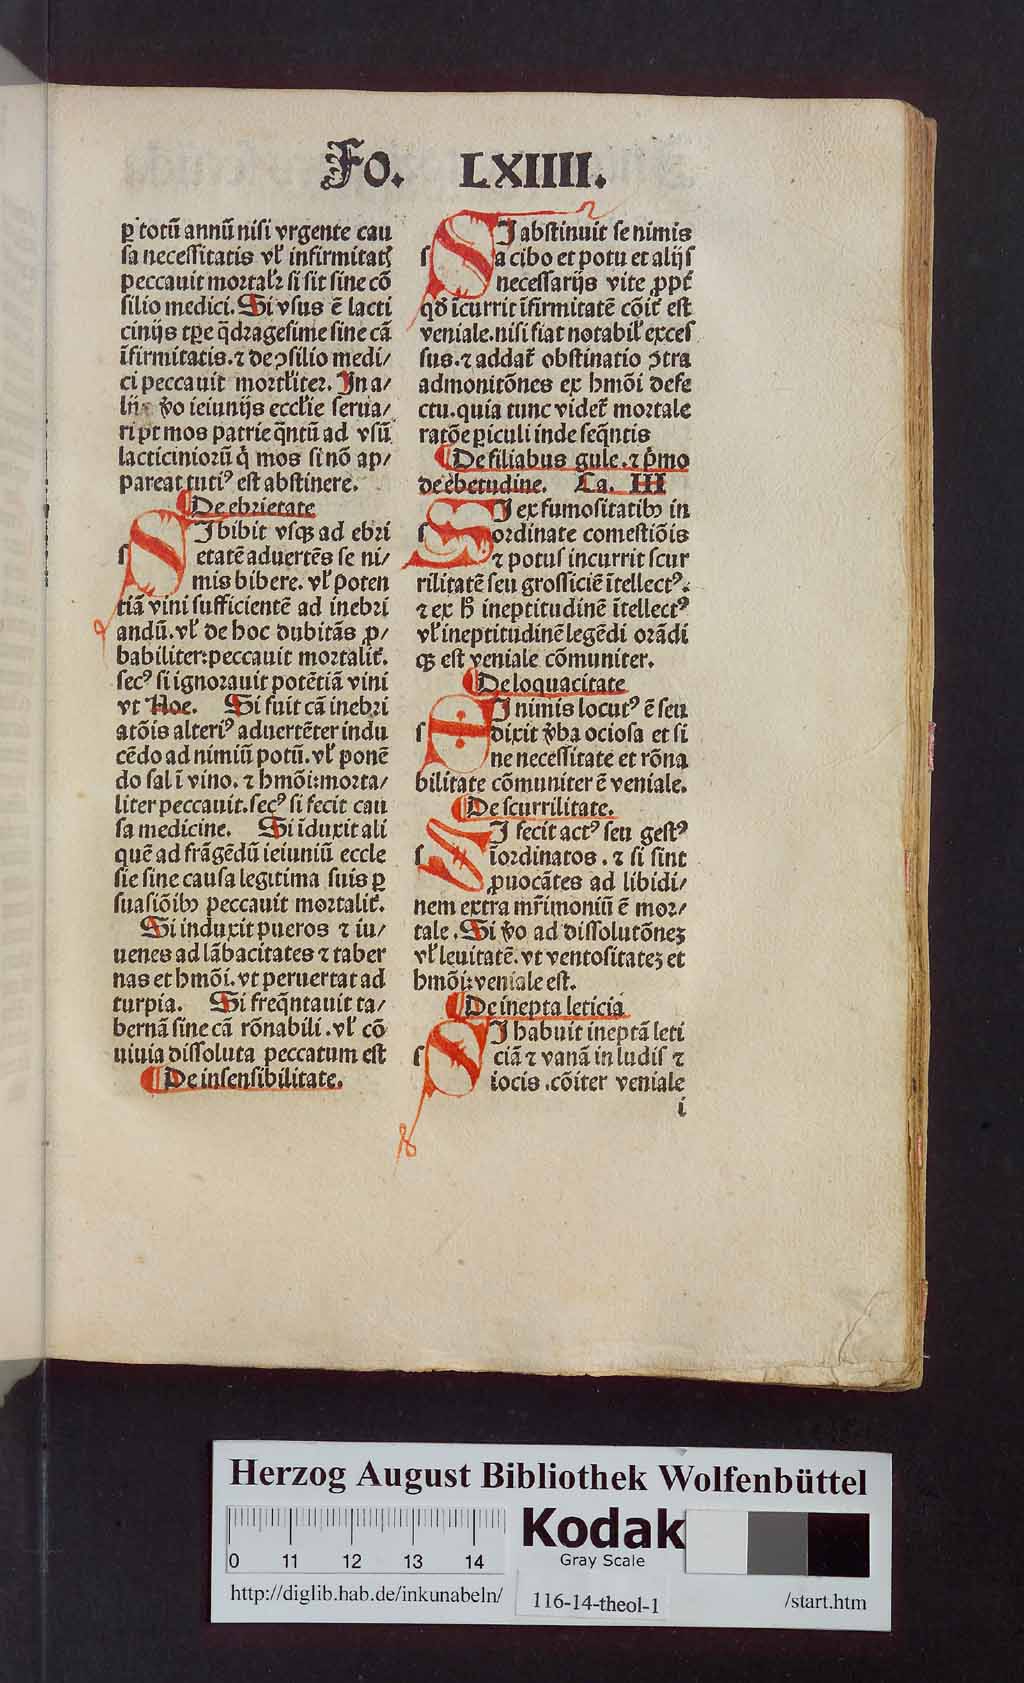 Fo. LXIIII.
ꝑ totū annū nisi vrgente cau
sa necessitatis vł infirmitatꝭ
peccauit mortalr̄ si sit sine cō
silio medici. Si vsus ē lacti
cinijs tꝑe q̄dragesime sine cā
īfirmitatis. ⁊ de ꝯsilio medi/
ci peccauit mortłiter. In a/
lijs v̄o ieiunijs ecclīe serua/
ri pt mos patrie q̄ntū ad vsū
lacticiniorū q̄ mos si nō ap/
pareat tutiꝰ est abstinere.
De ebrietate
s
I bibit vsqꝫ ad ebri
etatē aduertēs se ni/
mis bibere. vł poten
tiā vini sufficientē ad inebri
andū. vł de hoc dubitās ꝓ/
babiliter: peccauit mortalit̄.
secꝰ si ignorauit potētiā vini
vt Noe. Si fuit cā inebri
atōis alteriꝰ aduertēter indu
cēdo ad nimiū potū. vł ponē
do sal ī vino. ⁊ hmōi: morta/
liter peccauit. secꝰ si fecit cau
sa medicine. Si īduxit ali
quē ad frāgēdū ieiuniū eccle
sie sine causa legitima suis ꝑ
suasiōibꝫ peccauit mortalit̄.
Si induxit pueros ⁊ iu/
uenes ad lābacitates ⁊ taber
nas et hmōi. vt peruertat ad
turpia. Si freq̄ntauit ta/
bernā sine cā rōnabili. vł cō
uiuia dissoluta peccatum est
De insensibilitate.
s
I abstinuit se nimis
a cibo et potu et alijs
necessarijs vite ꝓpt̄
qđ īcurrit īfirmitatē cōit̄ est
veniale. nisi fiat notabił exces
sus. ⁊ addat̄ obstinatio ꝯtra
admonitōnes ex hmōi defe
ctu. quia tunc videt̄ mortale
ratōe ꝑiculi inde seq̄ntis
De filiabus gule. ⁊ p̄mo
de ebetudine. Ca. III
s
I ex fumositatibꝫ in
ordinate comestiōis
⁊ potus incurrit scur
rilitatē seu grossiciē ītellectꝰ:
⁊ ex h̄ ineptitudinē ītellectꝰ
vł ineptitudinē legēdi orādi
qꝫ est veniale cōmuniter.
De loquacitate
s
I nimis locutꝰ ē seu
dixit v̄ba ociosa et si
ne necessitate et rōna
bilitate cōmuniter ē veniale.
De scurrilitate.
s
I fecit actꝰ seu gestꝰ
īordinatos. ⁊ si sint
ꝓuocātes ad libidi/
nem extra mr̄imoniū ē mor/
tale. Si v̄o ad dissolutōneꝫ
vł leuitatē. vt ventositateꝫ et
hmōi: veniale est.
De inepta leticia
s
I habuit ineptā leti
ciā ⁊ vanā in ludis ⁊
iocis. cōiter veniale
i
Herzog August Bibliothek Wolfenbüttel
0 11 12 13 14
Kodak
Gray Scale
http://diglib.hab.de/inkunabeln/
116-14-theol-1
/start.htm